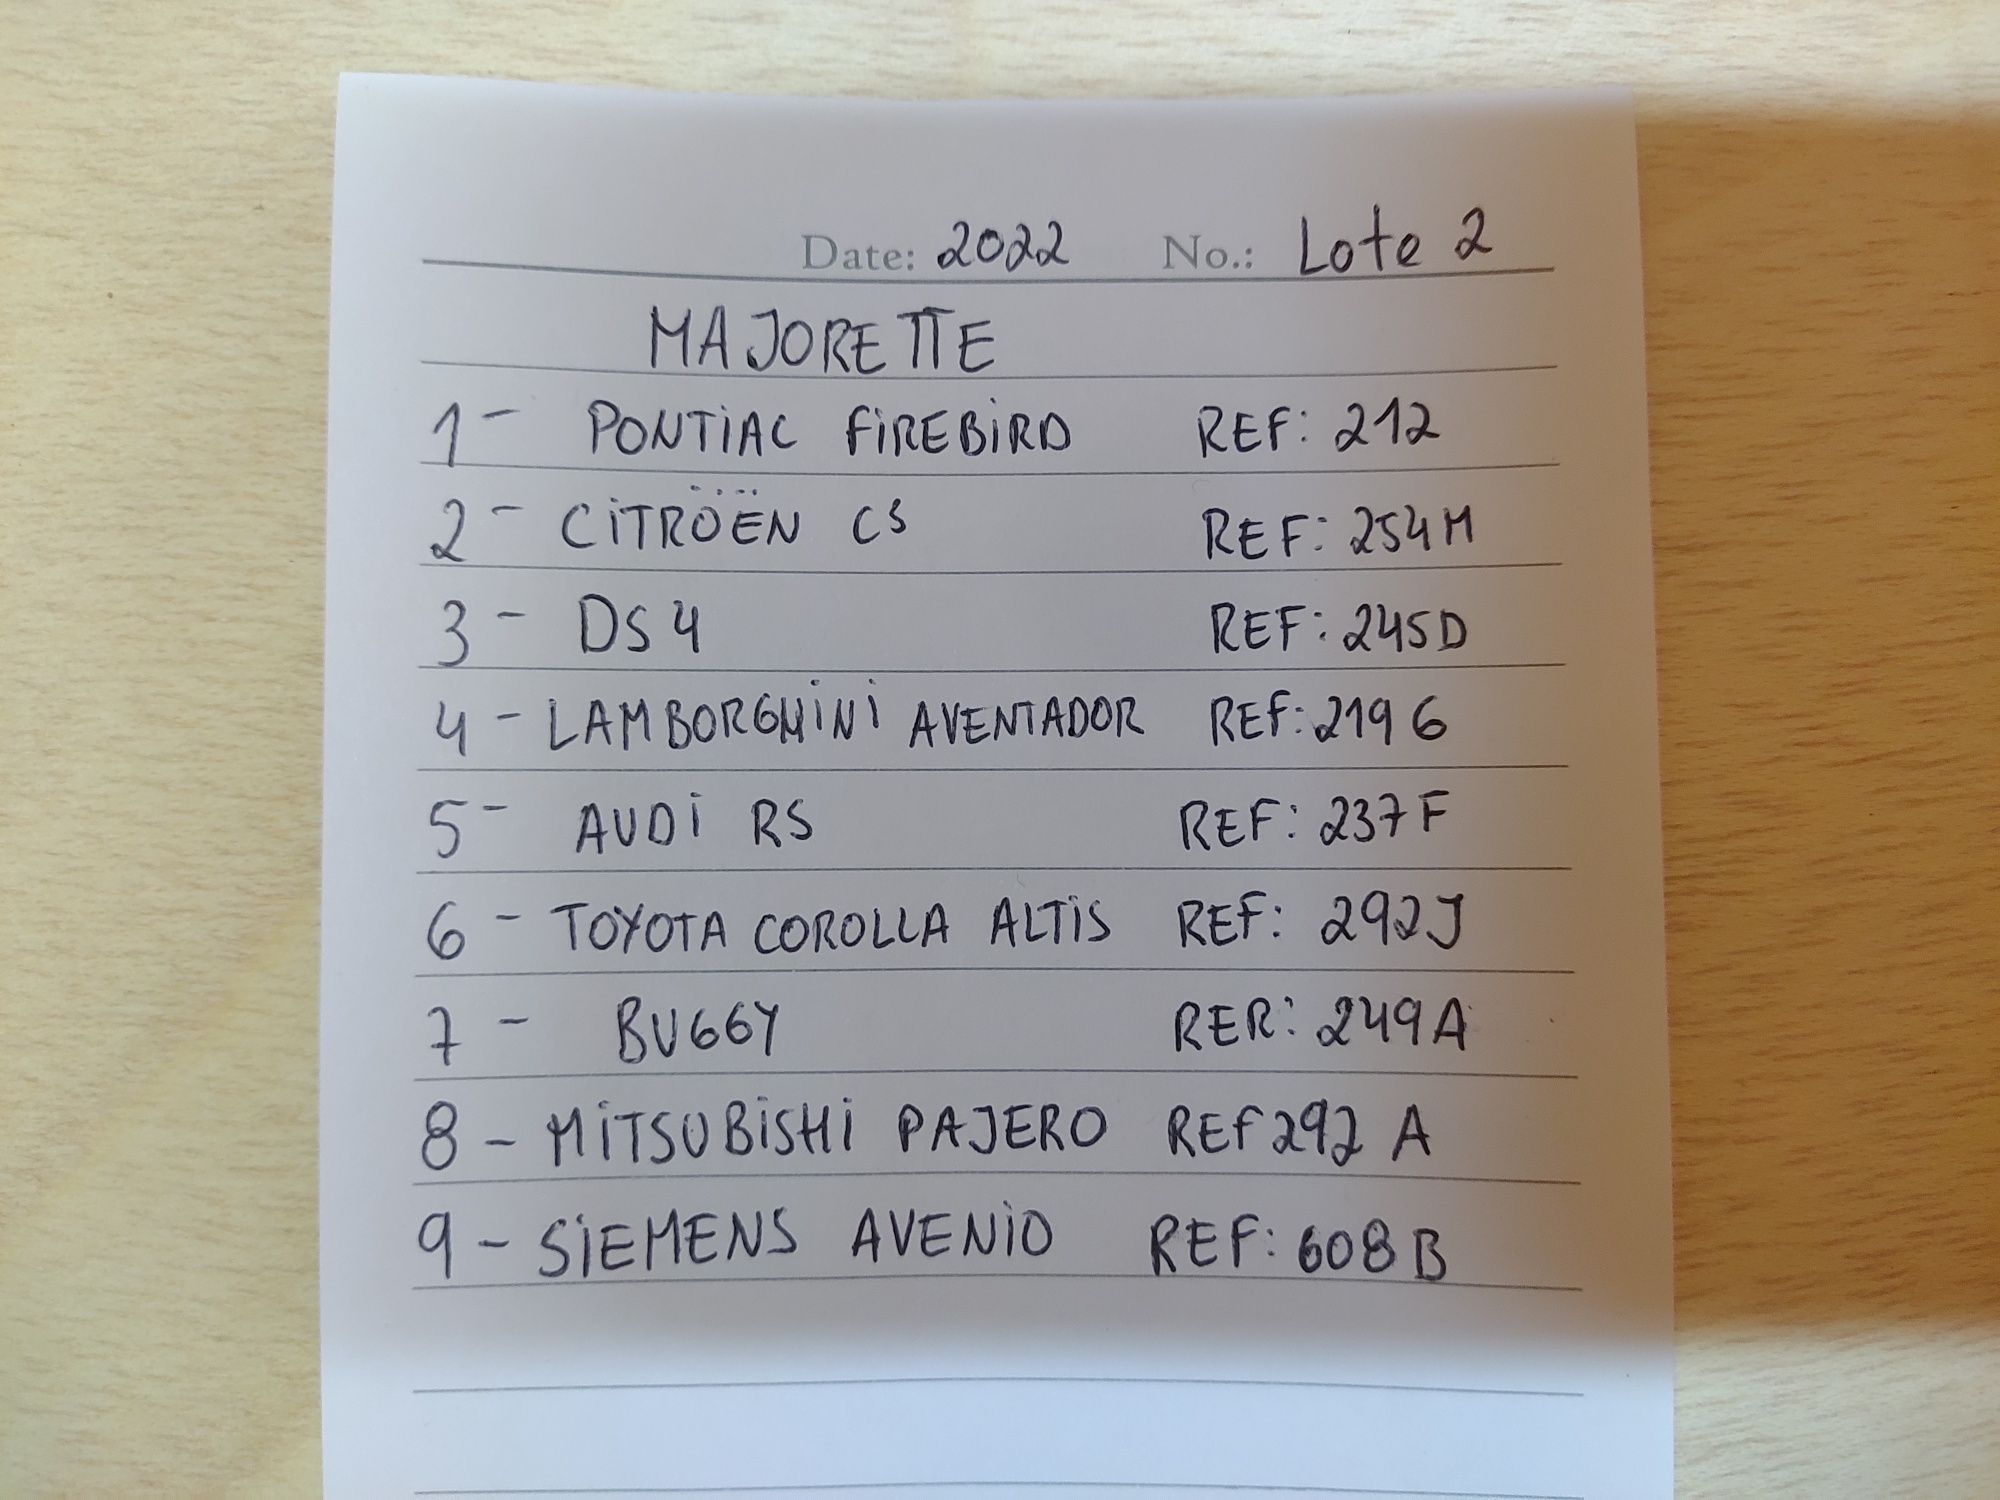 Date: 2022 No.: Lote 2
MAJORETTE
1- PONTIAC FIREBIRD REF: 212
2- CITRÖËN CS REF: 254M
3- DS4 REF: 245D
4- LAMBORGHINI AVENTADOR REF: 219 G
5- AUDI RS REF: 237F
6- TOYOTA COROLLA ALTIS REF: 292J
7- BUGGY RER: 249A
8- MITSUBISHI PAJERO REF292 A
9- SIEMENS AVENIO REF: 608B